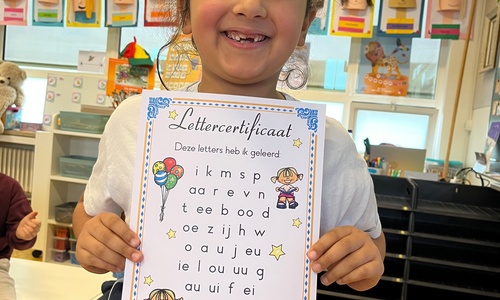 Lettercertificaat
Deze letters heb ik geleerd
i k m s p
aa r e v n
t ee b oo d
oe z ij h w
o a u j eu
ie l ou uu g
au ui f ei